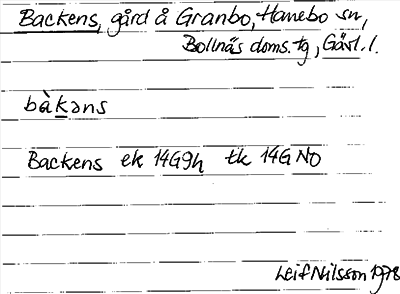 Backens, gård å Granbo, Hanebo sn,
Bollnäs doms.tg, Gävl. l.
bàkəns
Backens ek 14G9h tk 14G NO
Leif Nilsson 1978